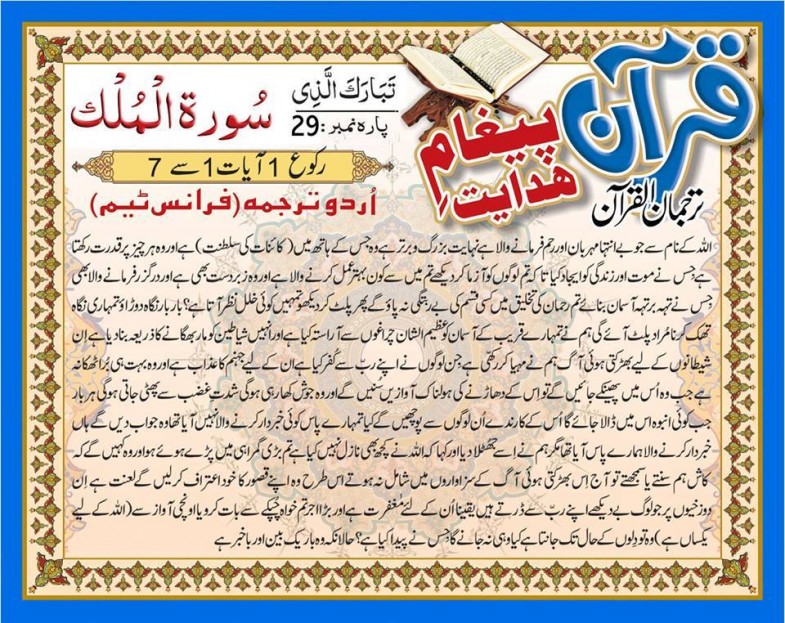 قرآن
پیغامِ
ھدایت
ترجمان القرآن
تَبَارَكَ الَّذِى
پارہ نمبر: 29
سُورة الْمُلْك
رکوع 1 آیات 1 سے 7
اُردو ترجمہ (فرانس ٹیم)
اللہ کے نام سے جو بے انتہا مہربان اور رحم فرمانے والا ہے نہایت بزرگ و برتر ہے وہ جس کے ہاتھ میں (کائنات کی سلطنت) ہے اور وہ ہر چیز پر قدرت رکھتا
ہے جس نے موت اور زندگی کو ایجاد کیا تاکہ تم لوگوں کو آزما کر دیکھے تم میں سے کون بہتر عمل کرنے والا ہے اور وہ زبردست بھی ہے اور درگزر فرمانے والا بھی
جس نے تہہ بر تہہ آسمان بنائے تم رحمان کی تخلیق میں کسی قسم کی بے ربطگی نہ پاؤ گے پھر پلٹ کر دیکھو تمہیں کوئی خلل نظر آتا ہے؟ بار بار نگاہ دوڑاؤ تمہاری نگاہ
تھک کر نامراد پلٹ آئے گی ہم نے تمہارے قریب کے آسمان کو عظیم الشان چراغوں سے آراستہ کیا ہے اور انہیں شیاطین کو مار بھگانے کا ذریعہ بنا دیا ہے اِن
شیطانوں کے لیے بھڑکتی ہوئی آگ ہم نے مہیا کر رکھی ہے جن لوگوں نے اپنے ربّ سے کُفر کیا ہے اِن کے لیے جہنم کا عذاب ہے اور وہ بہت ہی بُرا ٹھکانہ
ہے جب وہ اُس میں پھینکے جائیں گے تو اِس کے دھاڑنے کی ہولناک آوازیں سنیں گے اور وہ جوش کھا رہی ہوگی شدتِ غضب سے پھٹی جاتی ہوگی ہر بار
جب کوئی انبوہ اس میں ڈالا جائے گا اُس کے کارندے اُن لوگوں سے پوچھیں گے کیا تمہارے پاس کوئی خبردار کرنے والا نہیں آیا تھا وہ جواب دیں گے ہاں
خبردار کرنے والا ہمارے پاس آیا تھا مگر ہم نے اِسے جھٹلا دیا اور کہا کہ اللہ نے کچھ بھی نازل نہیں کیا ہے تم بڑی گمراہی میں پڑے ہوئے ہو اور وہ کہیں گے کہ
کاش ہم سنتے یا سمجھتے تو آج اِس بھڑکتی ہوئی آگ کے سزاواروں میں شامل نہ ہوتے اس طرح وہ اپنے قصور کا خود اعتراف کرلیں گے لعنت ہے اِن
دوزخیوں پر جو لوگ بے دیکھے اپنے ربّ سے ڈرتے ہیں یقیناً اُن کے لئے مغفرت ہے اور بڑا اجر تم خواہ چُپکے سے بات کرو یا اونچی آواز سے (اللہ کے لیے
یکساں ہے) وہ تو دِلوں کے حال تک جانتا ہے کیا وہی نہ جانے گا جس نے پیدا کیا ہے؟ حالانکہ وہ باریک بین اور باخبر ہے